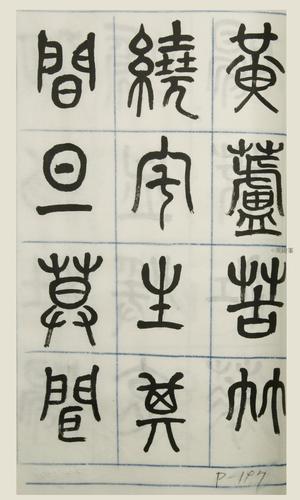 黃蘆苦竹
繞宅生其
間旦莫聞
P-147